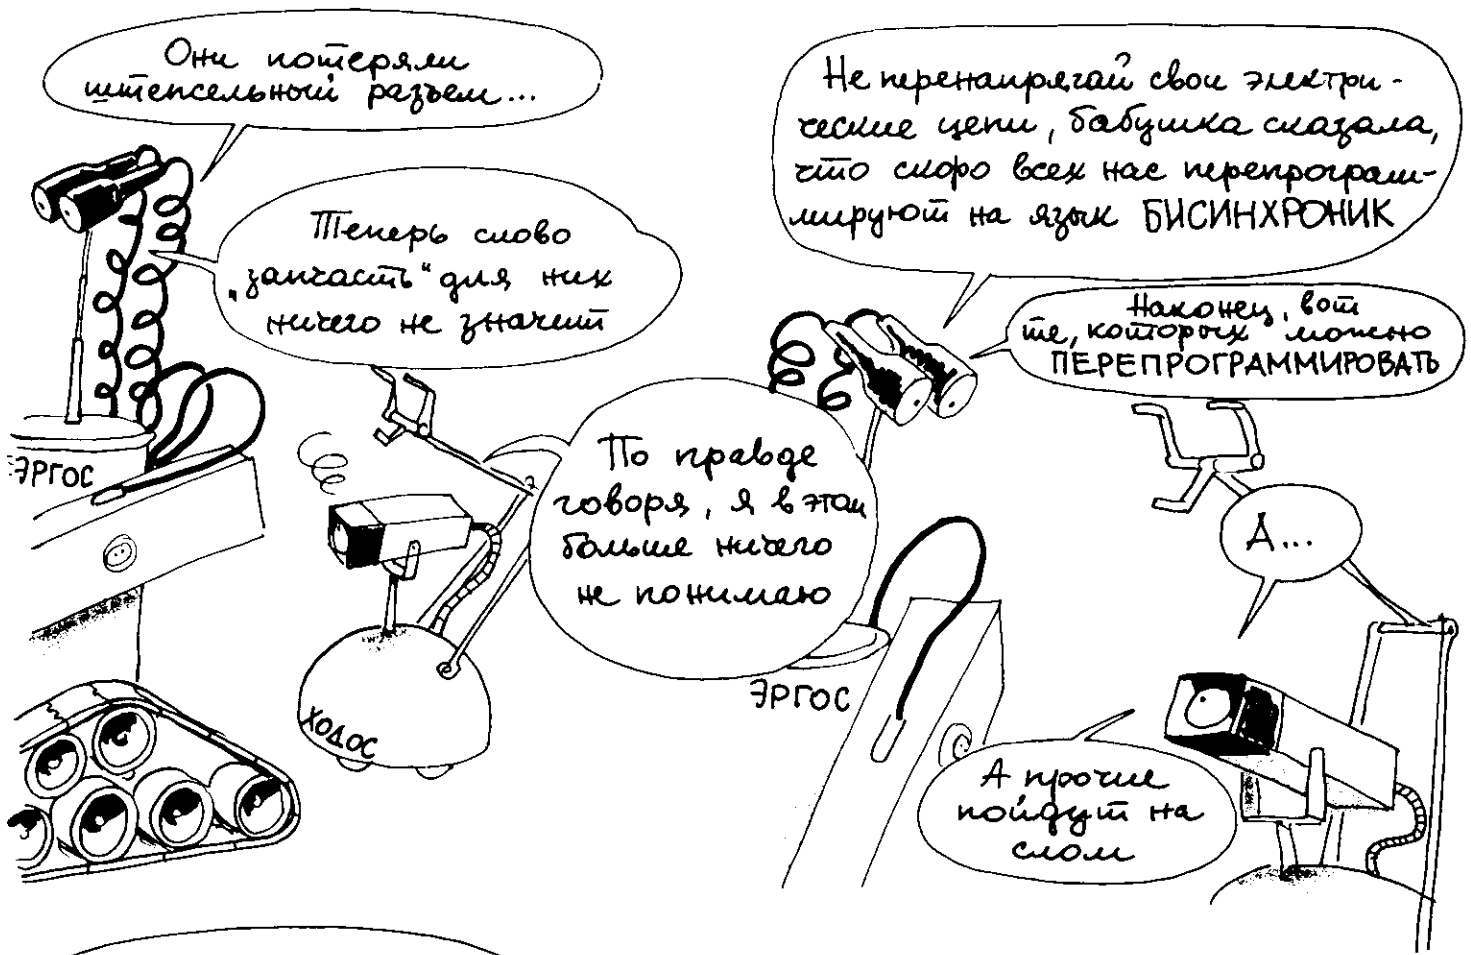 Они потеряли
штепсельный разъем...
Теперь слово
„запчасть“ для них
ничего не значит
ЭРГОС
ХОДОС
По правде
говоря, я в этом
больше ничего
не понимаю
Не перенапрягай свои электри-
ческие цепи, бабушка сказала,
что скоро всех нас перепрограм-
мируют на язык БИСИНХРОНИК
Наконец, вот
те, которых можно
ПЕРЕПРОГРАММИРОВАТЬ
ЭРГОС
А...
А прочие
пойдут на
слом